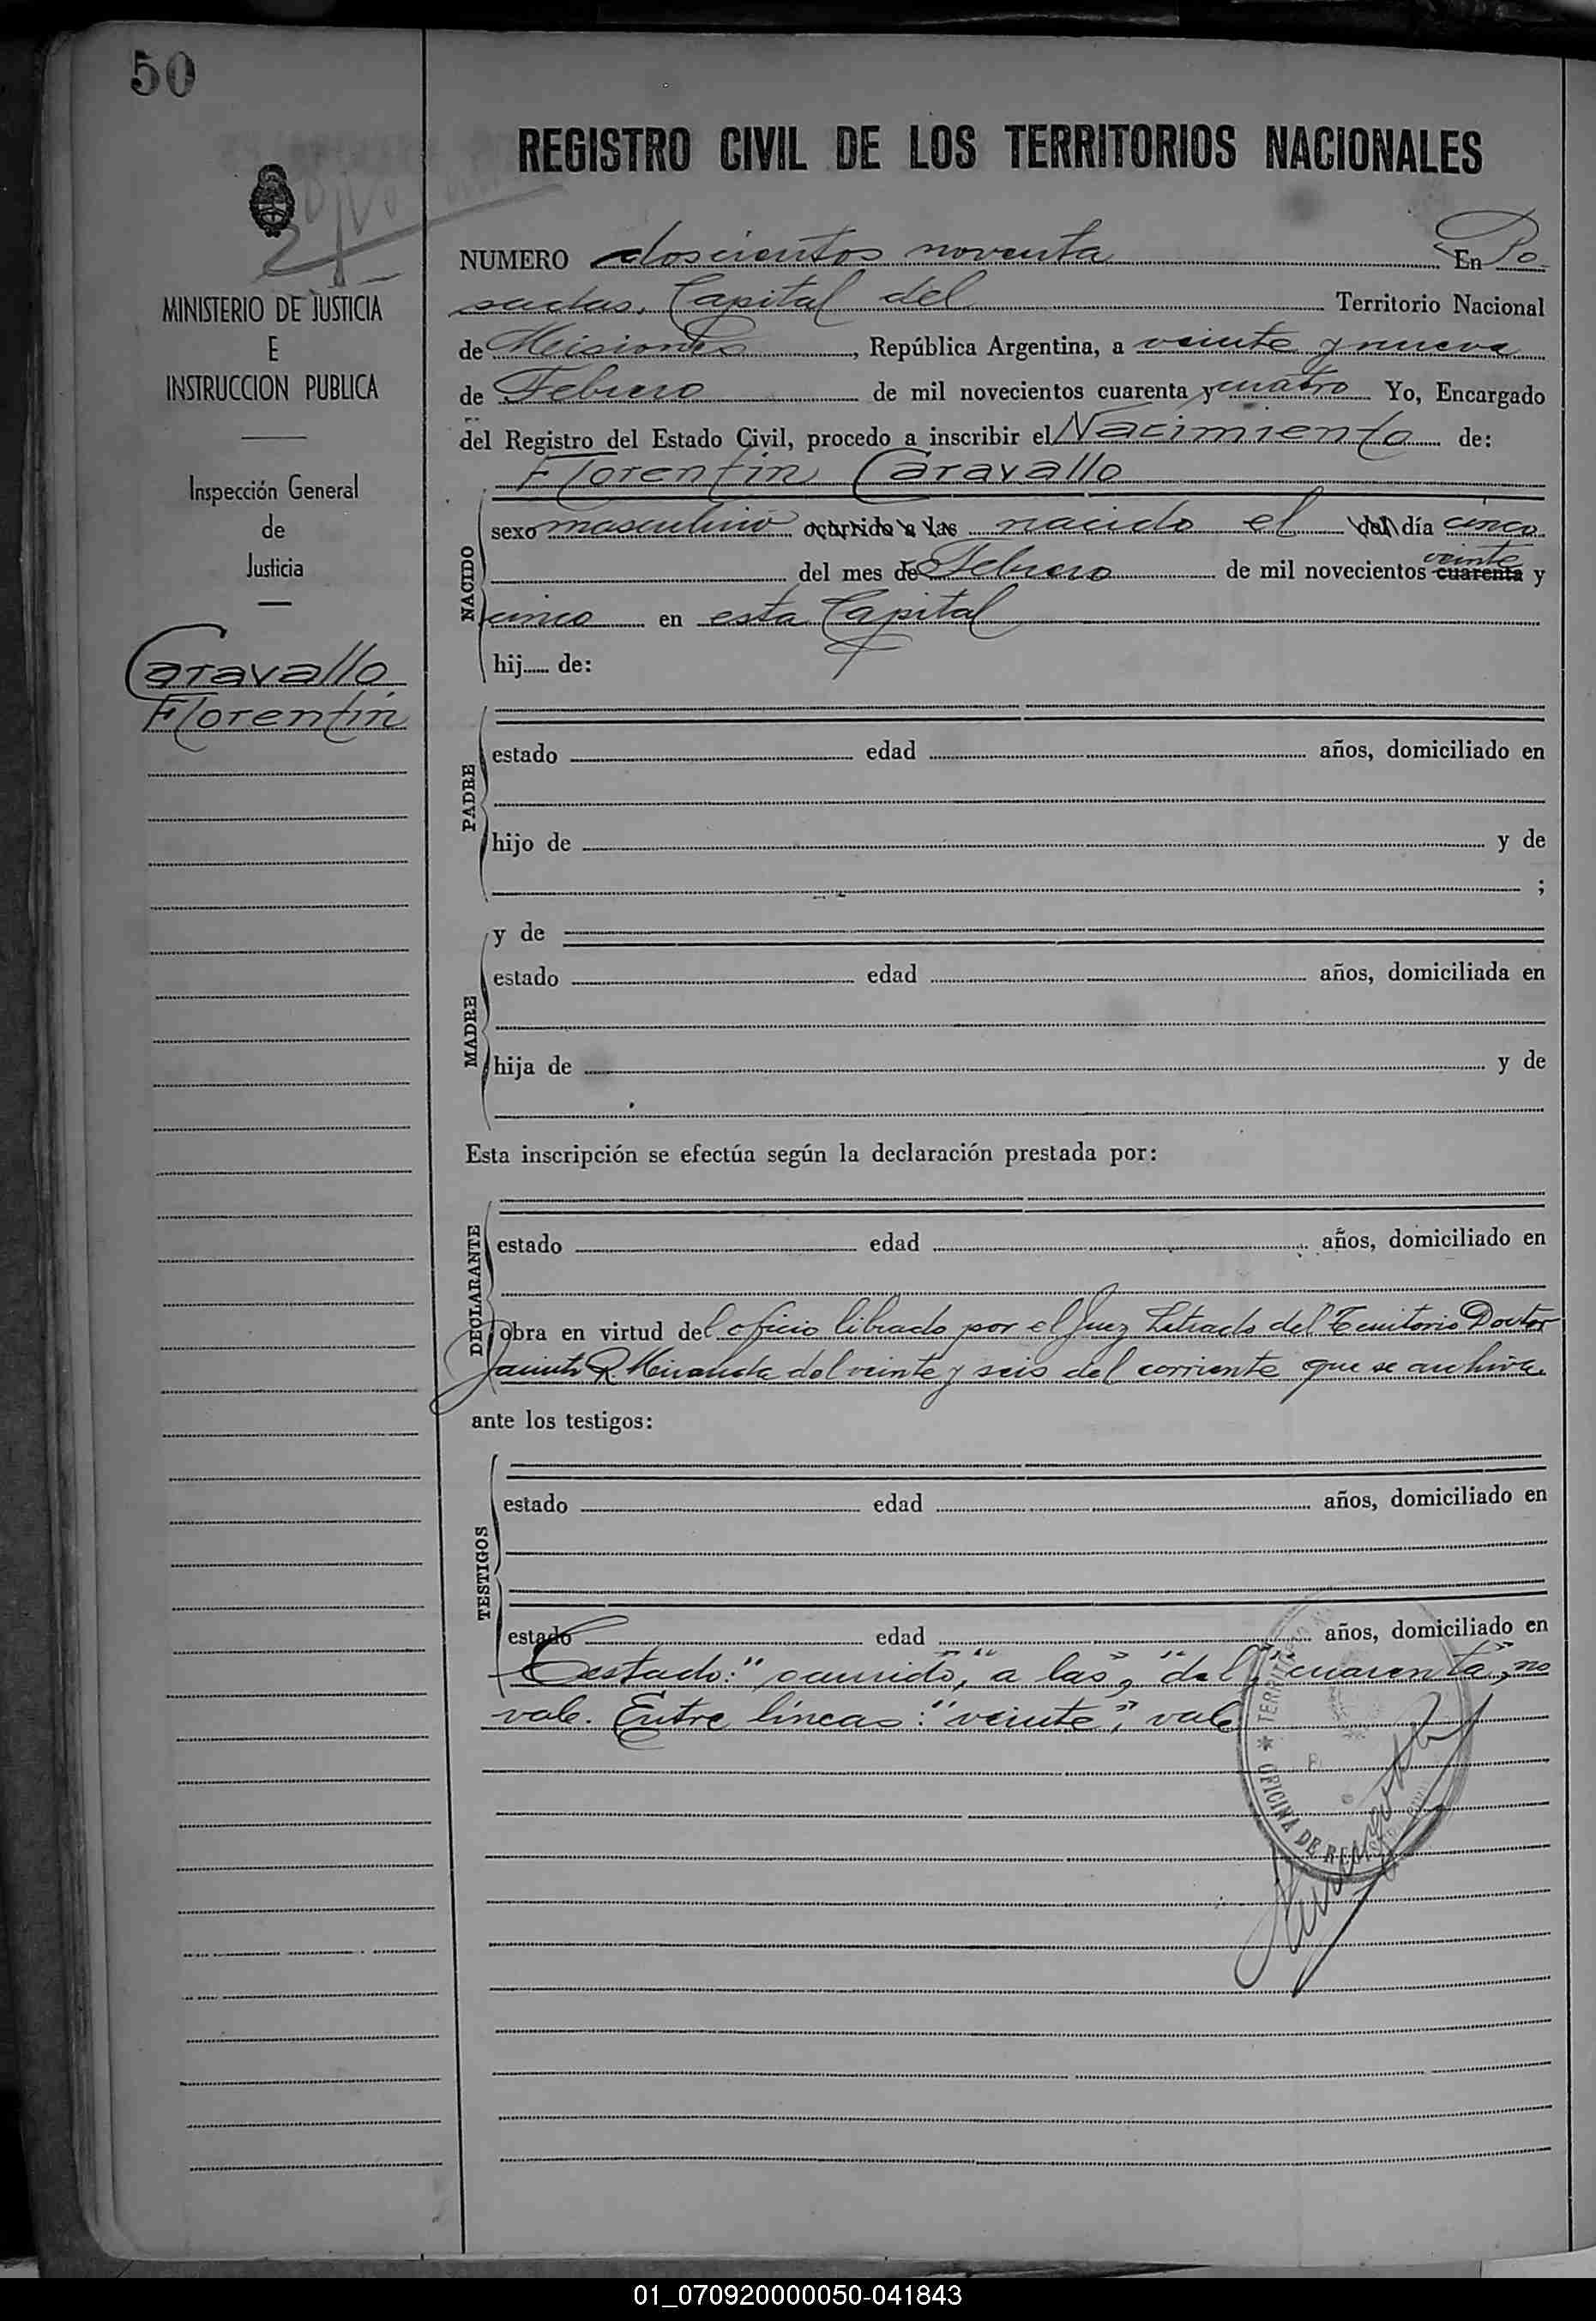 50
REGISTRO CIVIL DE LOS TERRITORIOS NACIONALES
MINISTERIO DE JUSTICIA
E
INSTRUCCION PUBLICA
Inspección General
de
Justicia
Caravallo
Florentin
NUMERO doscientos noventa En Po
sadas, Capital del Territorio Nacional
de Misiones, República Argentina, a veinte y nueve
de Febrero de mil novecientos cuarenta y cuatro Yo, Encargado
del Registro del Estado Civil, procedo a inscribir el Nacimiento de:
Florentin Caravallo
NACIDO
sexo masculino ocurrido a las nacido el del día cinco
veinte
del mes de Febrero de mil novecientos cuarenta y
cinco en esta Capital
hij de:
PADRE
estado edad años, domiciliado en
hijo de y de
;
MADRE
y de
estado edad años, domiciliada en
hija de y de
Esta inscripción se efectúa según la declaración prestada por:
DECLARANTE
estado edad años, domiciliado en
obra en virtud del oficio librado por el Juez Letrado del Territorio Doctor
Jacinto R. Miranda del veinte y seis del corriente que se archiva
ante los testigos:
TESTIGOS
estado edad años, domiciliado en
estado edad años, domiciliado en
Testado: "ocurrido", "a las", "del", "cuarenta", no
vale. Entre líneas: "veinte", vale
* OFICINA DE REGISTRO
01_070920000050-041843